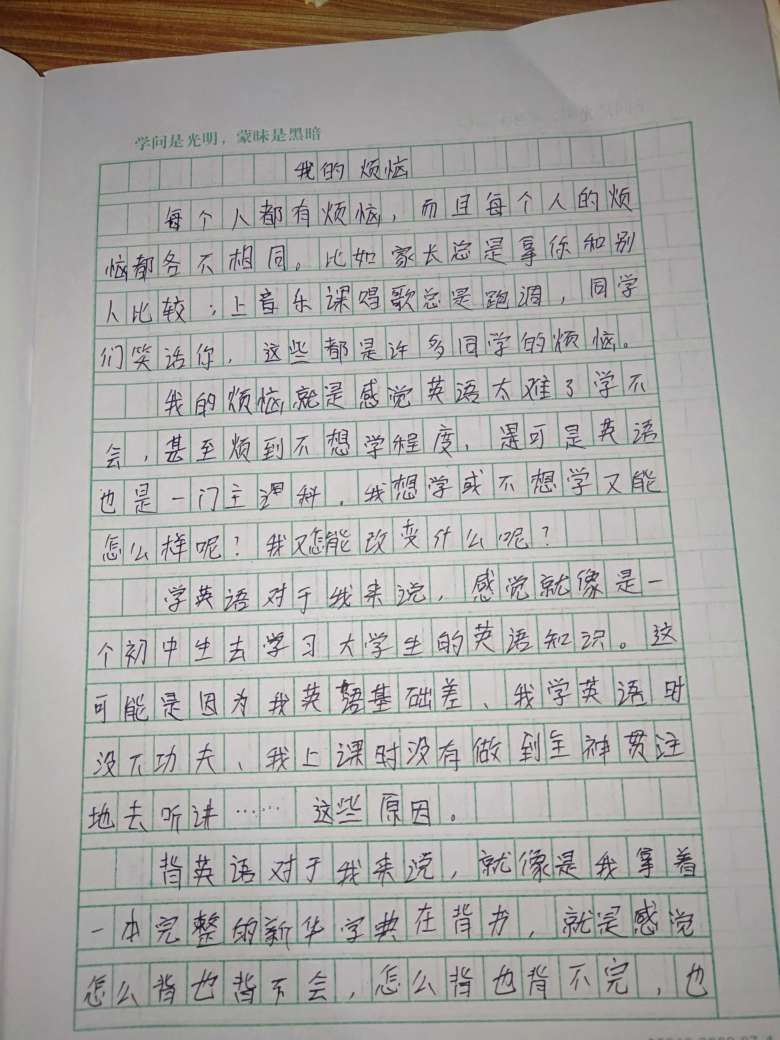 学问是光明，蒙昧是黑暗
我的烦恼
每个人都有烦恼，而且每个人的烦
恼都各不相同。比如家长总是拿你和别
人比较；上音乐课唱歌总是跑调，同学
们笑话你，这些都是许多同学的烦恼。
我的烦恼就是感觉英语太难了学不
会，甚至烦到不想学程度，是可是英语
也是一门主课科，我想学或不想学又能
怎么样呢？我又怎能改变什么呢？
学英语对于我来说，感觉就像是一
个初中生去学习大学生的英语知识。这
可能是因为我英语基础差、我学英语时
没下功夫、我上课时没有做到全神贯注
地去听讲……这些原因。
背英语对于我来说，就像是我拿着
一本完整的新华字典在背书，就是感觉
怎么背也背不会，怎么背也背不完，也